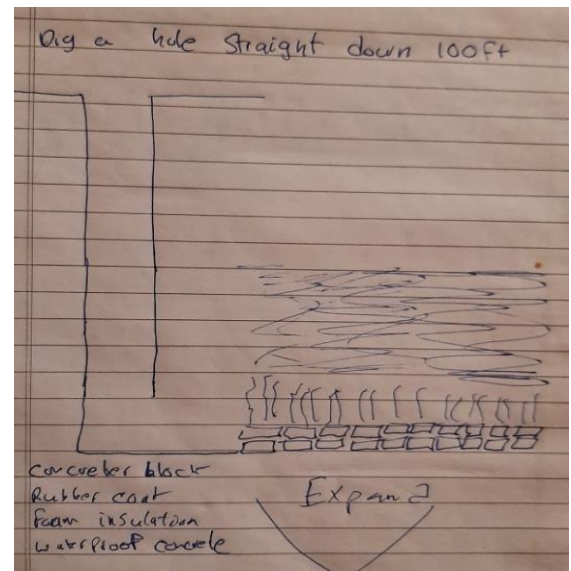 Dig a hole Straight down 100ft
Concreter block
Rubber coat
Foam insulation
waterproof concrete
Expand